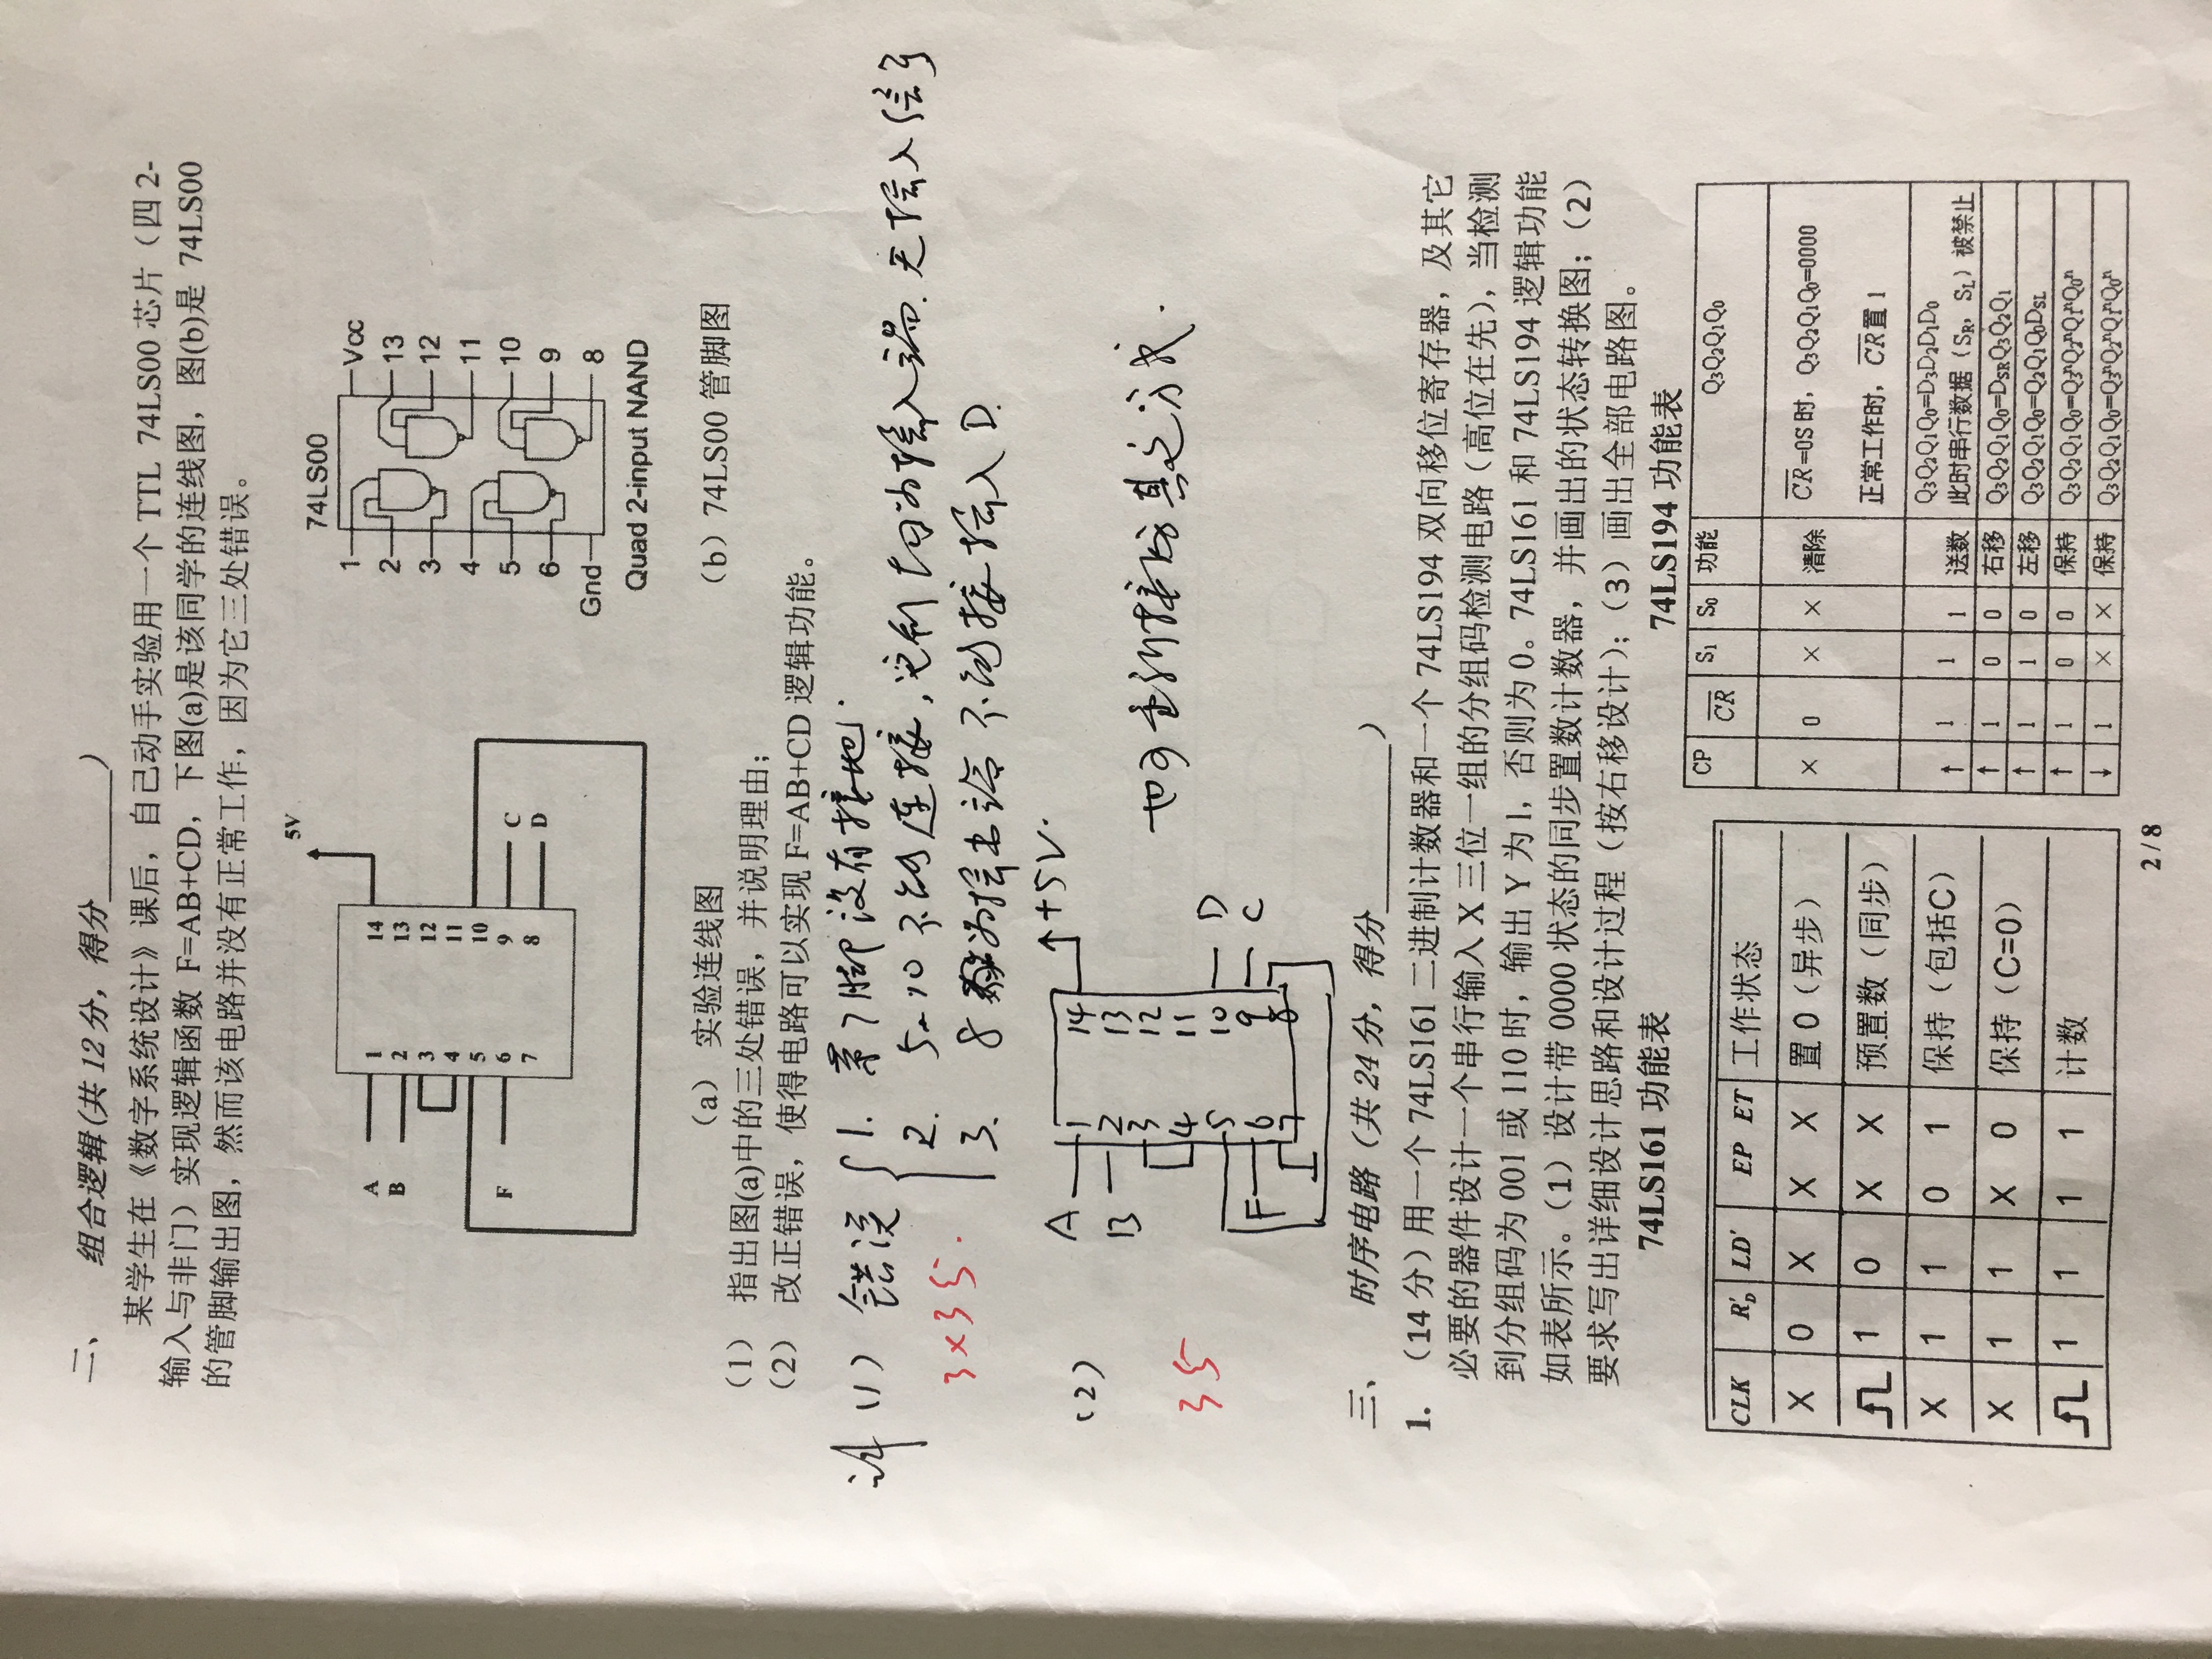 二、 组合逻辑(共 12 分，得分________)
某学生在《数字系统设计》课后，自己动手实验用一个 TTL 74LS00 芯片（四 2-
输入与非门）实现逻辑函数 F=AB+CD，下图(a)是该同学的连线图，图(b)是 74LS00
的管脚输出图，然而该电路并没有正常工作，因为它三处错误。
5V
A
B
F
1
2
3
4
5
6
7
14
13
12
11
10
9
8
C
D
74LS00
1
2
3
4
5
6
Gnd
Vcc
13
12
11
10
9
8
Quad 2-input NAND
（a） 实验连线图
（b）74LS00 管脚图
（1） 指出图(a)中的三处错误，并说明理由；
（2） 改正错误，使得电路可以实现 F=AB+CD 逻辑功能。
(1) 错误 1. 第7脚没有接地.
2. 5, 10 不能连接, 它们均为输入端. 无输入信号
3×3分.
3. 8 为输出端 不能接输入 D.
(2)
A
B
F
1
2
3
4
5
6
7
14
13
12
11
10
9
8
+5V.
D
C
也可重新接成其它方式.
3分
三、 时序电路（共 24 分，得分__________）
1. （14 分）用一个 74LS161 二进制计数器和一个 74LS194 双向移位寄存器，及其它
必要的器件设计一个串行输入 X 三位一组的分组码检测电路（高位在先），当检测
到分组码为 001 或 110 时，输出 Y 为 1，否则为 0。74LS161 和 74LS194 逻辑功能
如表所示。（1）设计带 0000 状态的同步置数计数器，并画出的状态转换图；（2）
要求写出详细设计思路和设计过程（按右移设计）；（3）画出全部电路图。
74LS161 功能表
CLK R'D LD' EP ET 工作状态
X 0 X X X 置 0（异步）
1 0 X X 预置数（同步）
X 1 1 0 1 保持（包括C）
X 1 1 X 0 保持（C=0）
1 1 1 1 计数
74LS194 功能表
CP C̅R̅ S₁ S₀ 功能 Q₃Q₂Q₁Q₀
× 0 × × 清除 C̅R̅=0S 时，Q₃Q₂Q₁Q₀=0000
正常工作时，C̅R̅ 置 1
↑ 1 1 1 送数 Q₃Q₂Q₁Q₀=D₃D₂D₁D₀
此时串行数据（SR，SL）被禁止
↑ 1 0 0 右移 Q₃Q₂Q₁Q₀=DSRQ₃Q₂Q₁
↑ 1 1 0 左移 Q₃Q₂Q₁Q₀=Q₂Q₁Q₀DSL
↑ 1 0 0 保持 Q₃Q₂Q₁Q₀=Q₃ⁿQ₂ⁿQ₁ⁿQ₀ⁿ
↓ 1 × × 保持 Q₃Q₂Q₁Q₀=Q₃ⁿQ₂ⁿQ₁ⁿQ₀ⁿ
2 / 8